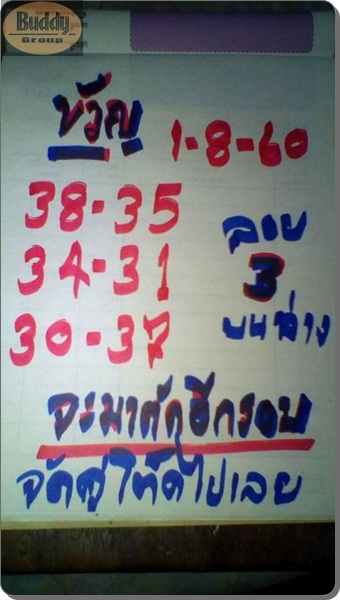 Buddy
Group
ขวัญ
1-8-60
38-35
34-31
30-37
ลอย
3
บนล่าง
จะมาอีกรอบ
จัดคู่ ให้ดีไปเลย